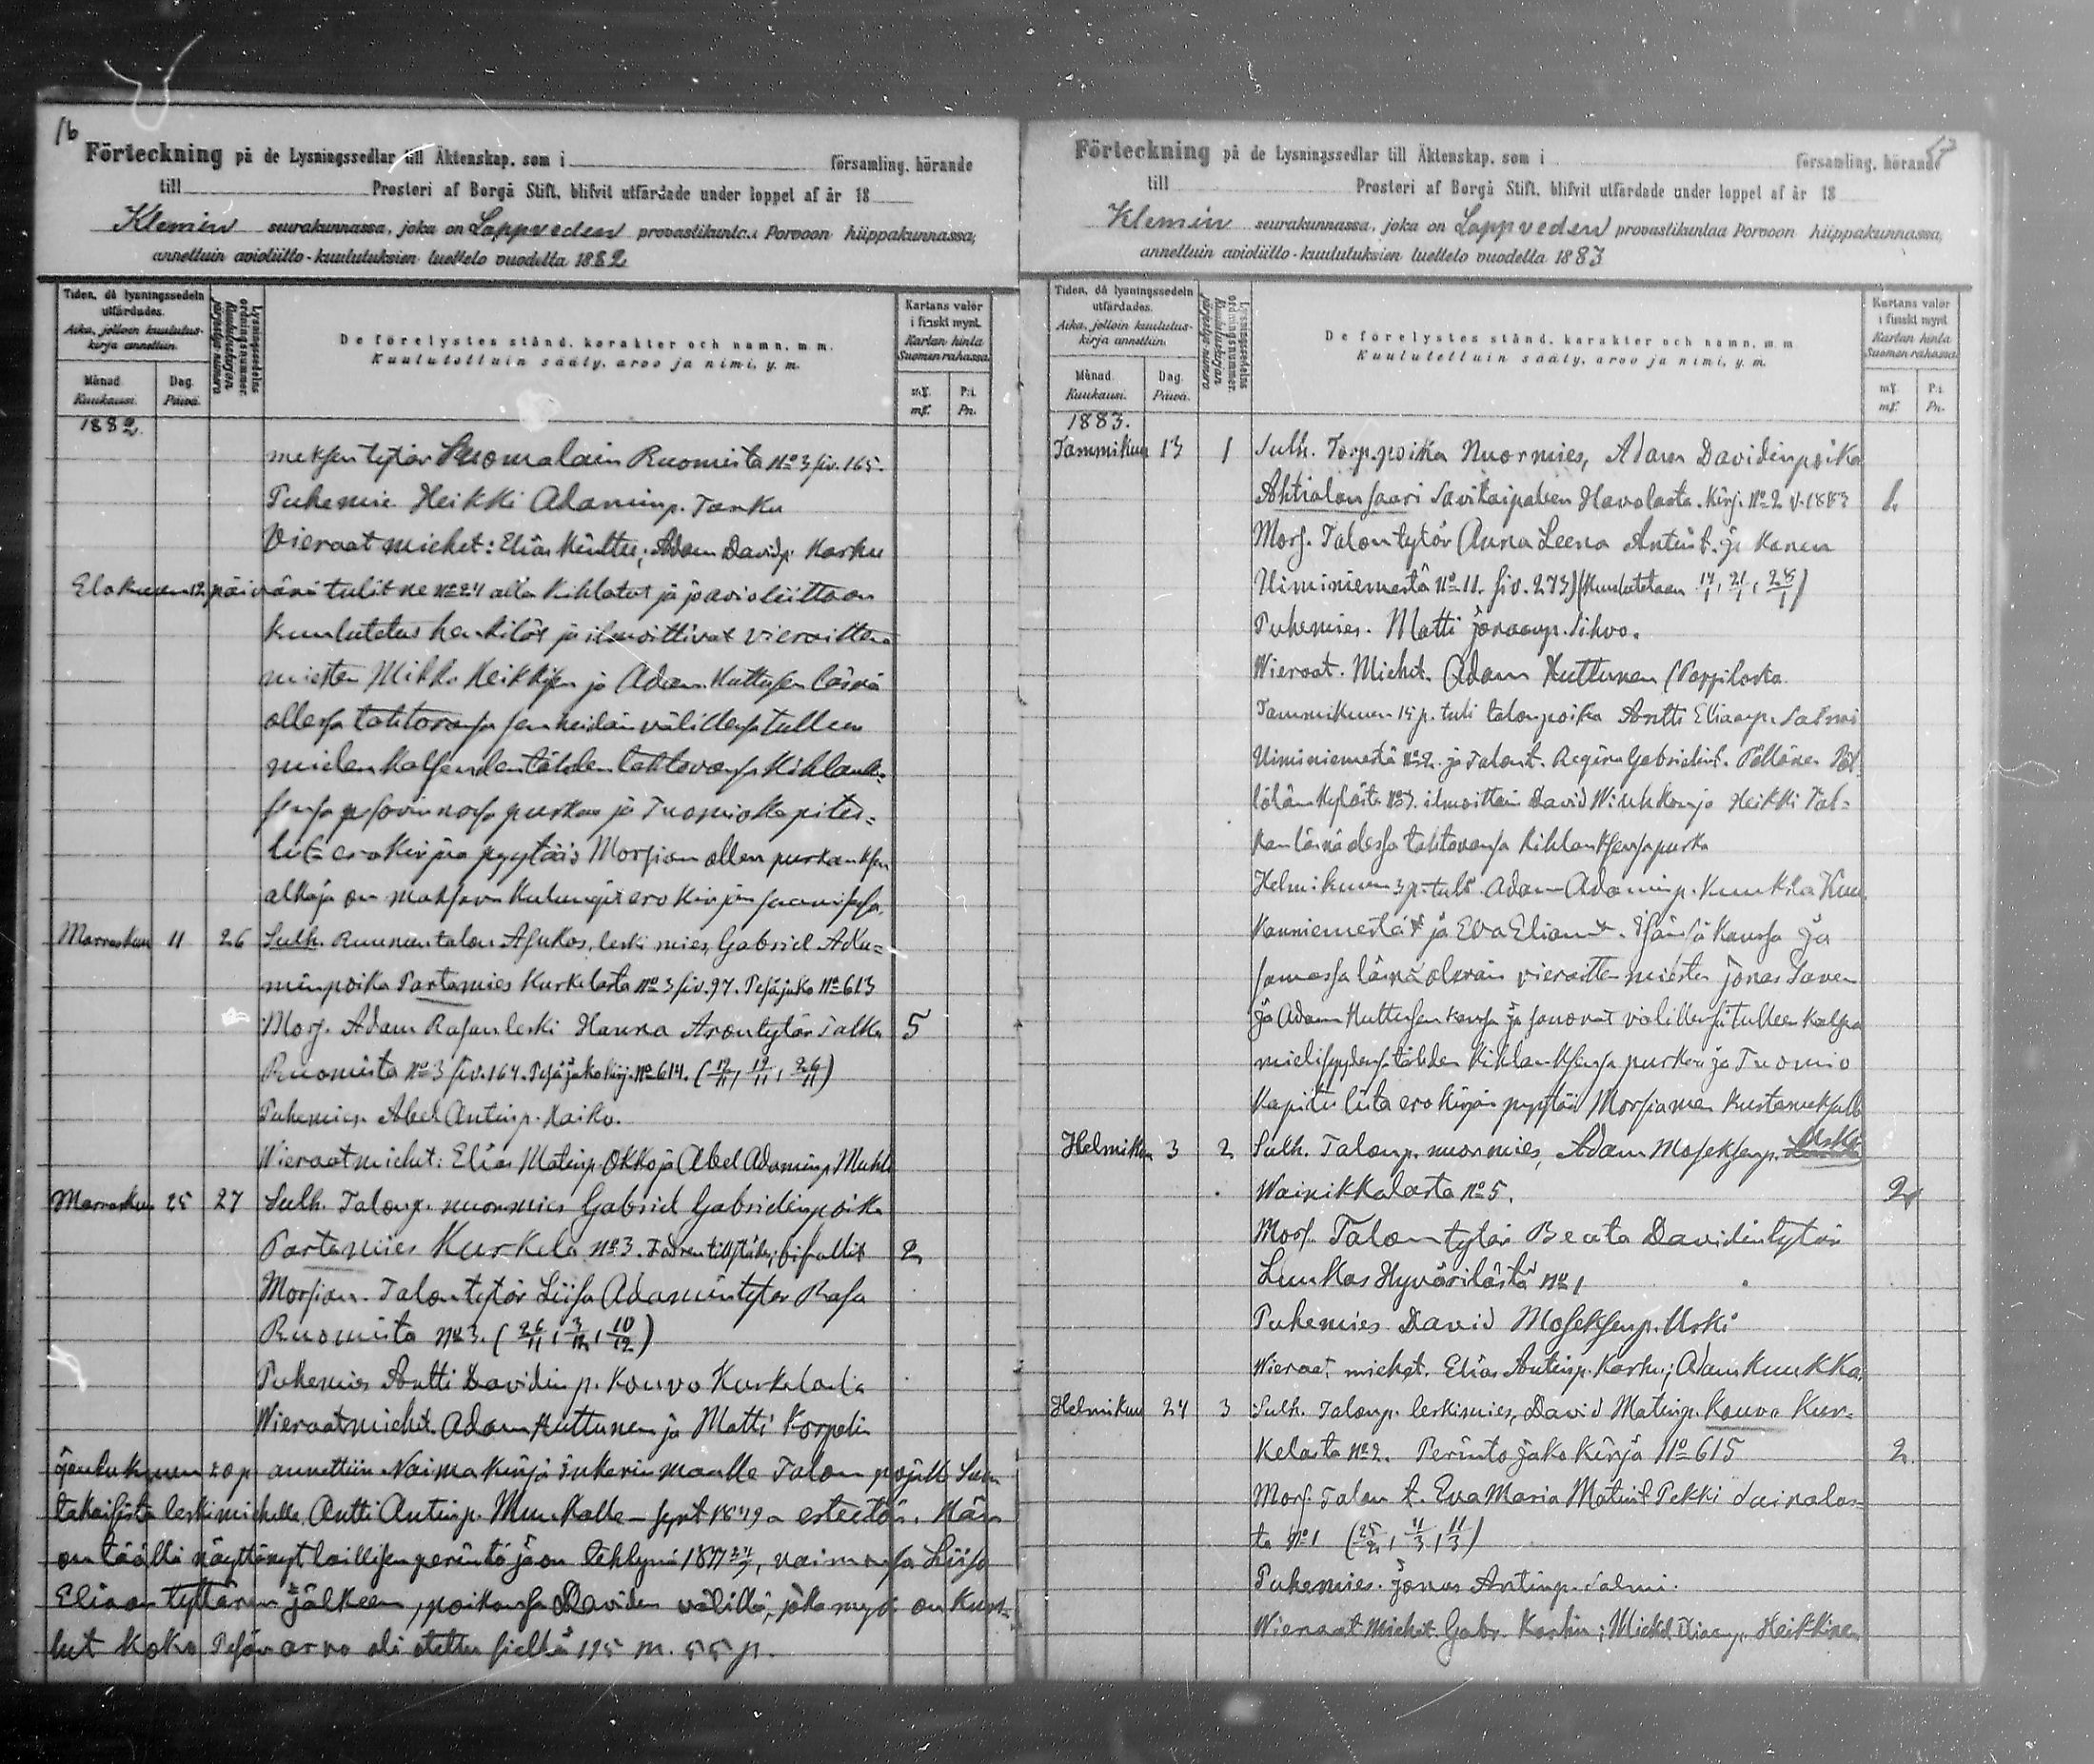 16
Förteckning på de Lysningssedlar till Äktenskap, som i församling, hörande
till Prosteri af Borgå Stift, blifvit utfärdade under loppet af år 18
Klemin seurakunnassa, joka on Lappveden provastikuntaa Porvoon hiippakunnassa,
annettuin avioliitto-kuulutuksien luettelo vuodelta 1882
Tiden, då lysningssedeln utfärdades.
Aika, jolloin kuulutus-kirja annettiin.
Månad. Kuukausi.
Dag. Päivä.
Lysningssedelns ordningsnummer.
Kuulutuskirjan järjestys-numero
De förelystes stånd, karakter och namn, m. m.
Kuulutettuin sääty, arvo ja nimi, y. m.
Kartans valör i finskt mynt.
Kartan hinta Suomen rahassa.
mf. mf.
P:i. Pn.
1882.
meksen tytär Suomalain Ruomista No 3 siv. 165.
Puhemie Heikki Adaminp. Tanku
Vieraat miehet: Elias Kinttu, Adam Davidp. Karku
Elokuun 12 päivänä tulit ne No 24 alla kihlatut ja jo avioliittoon
kuulutetus henkilöt ja ilmoittivat vieraitten
miesten Mikk. Heikkisen ja Adam Huttusen läsnä
ollessa tahtovansa sen heidän välillensä tulleen
mielen kalseuden tähden tahtovansa kihlauk-
sensa sovinnossa purkaa ja Tuomiokapitu-
lista erokirjaa pyytää Morsian ollen purkauksen
alkaja on maksava kulungit erokirjan saamisessa.
Marraskuu 11 26 Sulh. Ruununtalon Asukas, leski mies, Gabriel Ada-
minpoika Partamies Kurkelasta No 3 siv. 97. Pesäjako No 613
Mors. Adam Rasan leski Hanna Arontytär Talka 5
Ruomista No 3 siv. 164. Pesäjakokirj. No 614. (12/11, 19/11, 26/11)
Puhemies Abel Antinp. Haiko.
Wieraat miehet: Elias Matinp. Okko ja Abel Adaminp. Muhli
Marraskuu 25 27 Sulh. Talonp. nuormies Gabriel Gabrielinpoika
Partamies Kurkela No 3. Fadren tillstäder, bifallit 2
Morsian. Talontytär Liisa Adamintytär Rasa
Ruomista No 3. (26/11, 3/12, 10/12)
Puhemies Antti Davidinp. Kouvo Kurkelasta
Wieraat miehet. Adam Huttunen ja Matti Korpelin
Joulukuun 20 p annettiin Naimakirja Inkerinmaalle Talon pojalle
leskimiehelle, Antti Antinp. Munkalle – synt 1849 – esteetön. Hän
on täällä näyttänyt laillisen perintöjaon tehtynä 1877, vaimonsa Liisa
Eliaan tyttären jälkeen, poikansa Davidin välillä, joka nyt on kuol-
lut koko Pesän arvo oli otettu sieltä 195 m. 55 p.
Förteckning på de Lysningssedlar till Äktenskap, som i församling, hörande
till Prosteri af Borgå Stift, blifvit utfärdade under loppet af år 18
Klemin seurakunnassa, joka on Lappveden provastikuntaa Porvoon hiippakunnassa,
annettuin avioliitto-kuulutuksien luettelo vuodelta 1883
Tiden, då lysningssedeln utfärdades.
Aika, jolloin kuulutus-kirja annettiin.
Månad. Kuukausi.
Dag. Päivä.
Lysningssedelns ordningsnummer.
Kuulutuskirjan järjestys-numero
De förelystes stånd, karakter och namn, m. m
Kuulutettuin sääty, arvo ja nimi, y. m.
Kartans valör i finskt mynt
Kartan hinta Suomen rahassa
mf. mf.
P:i. Pn.
1883.
Tammikuu 13 1 Sulh. Torp. poika Nuormies, Adam Davidinpoika
Ahtialansaari Savitaipaleen Havolasta. Kirj. No 2 v. 1883
Mors. Talontytär Anna Leena Antint. Janen
Uiminiemestä No 11. siv. 273) (Kuulutetaan 14/1, 21/1, 28/1)
Puhemies. Matti Jonaanp. Sihvo.
Wieraat. Miehet. Adam Huttunen / Pappilasta
Tammikuun 14 p. tuli talonpoika Antti Eliaanp. Salmi
Uiminiemestä No 2. ja Talont. Regina Gabrielint. Pöllänen Pöl-
lölän kylästä No 3. ilmoittain David Wirkkon ja Heikki Tal-
kan läsnä olessa tahtovansa kihlauksensa purka
Helmikuun 3 p. tuli Adam Adaminp. Kuukka Kuu
kanniemestä ja Eva Eliant. Isänsä kanssa ja
samassa läsnä olevain vieraitten miesten Jonas Saven
ja Adam Huttusen kanssa ja sanovat välillensä tulleen kalsea
mielisyydensä tähden kihlauksensa purkaa ja Tuomio
Kapitulista erokirjan pyytää Morsiamen kustannuksella
Helmikuu 3 2 Sulh. Talonp. nuormies, Adam Moseksenp. Uski
Wainikkalasta No 5. 2
Mors. Talontytär Beata Davidintytär
Luukas Hyvärilästä No 1
Puhemies David Moseksenp. Uski
Wieraat miehet. Elias Antinp. Karku; Adam Kuukka.
Helmikuu 24 3 Sulh. Talonp. leskimies, David Matinp. Kouvo Kur-
kelasta No 2. Perintöjako Kirja No 615 2
Mors. Talon t. Eva Maria Matint. Pekki Suinalas-
ta No 1 (25/2, 4/3, 11/3)
Puhemies. Jonas Antinp. Salmi.
Wieraat Miehet. Gabr. Karhu; Mickel Eliaanp. Heikkinen